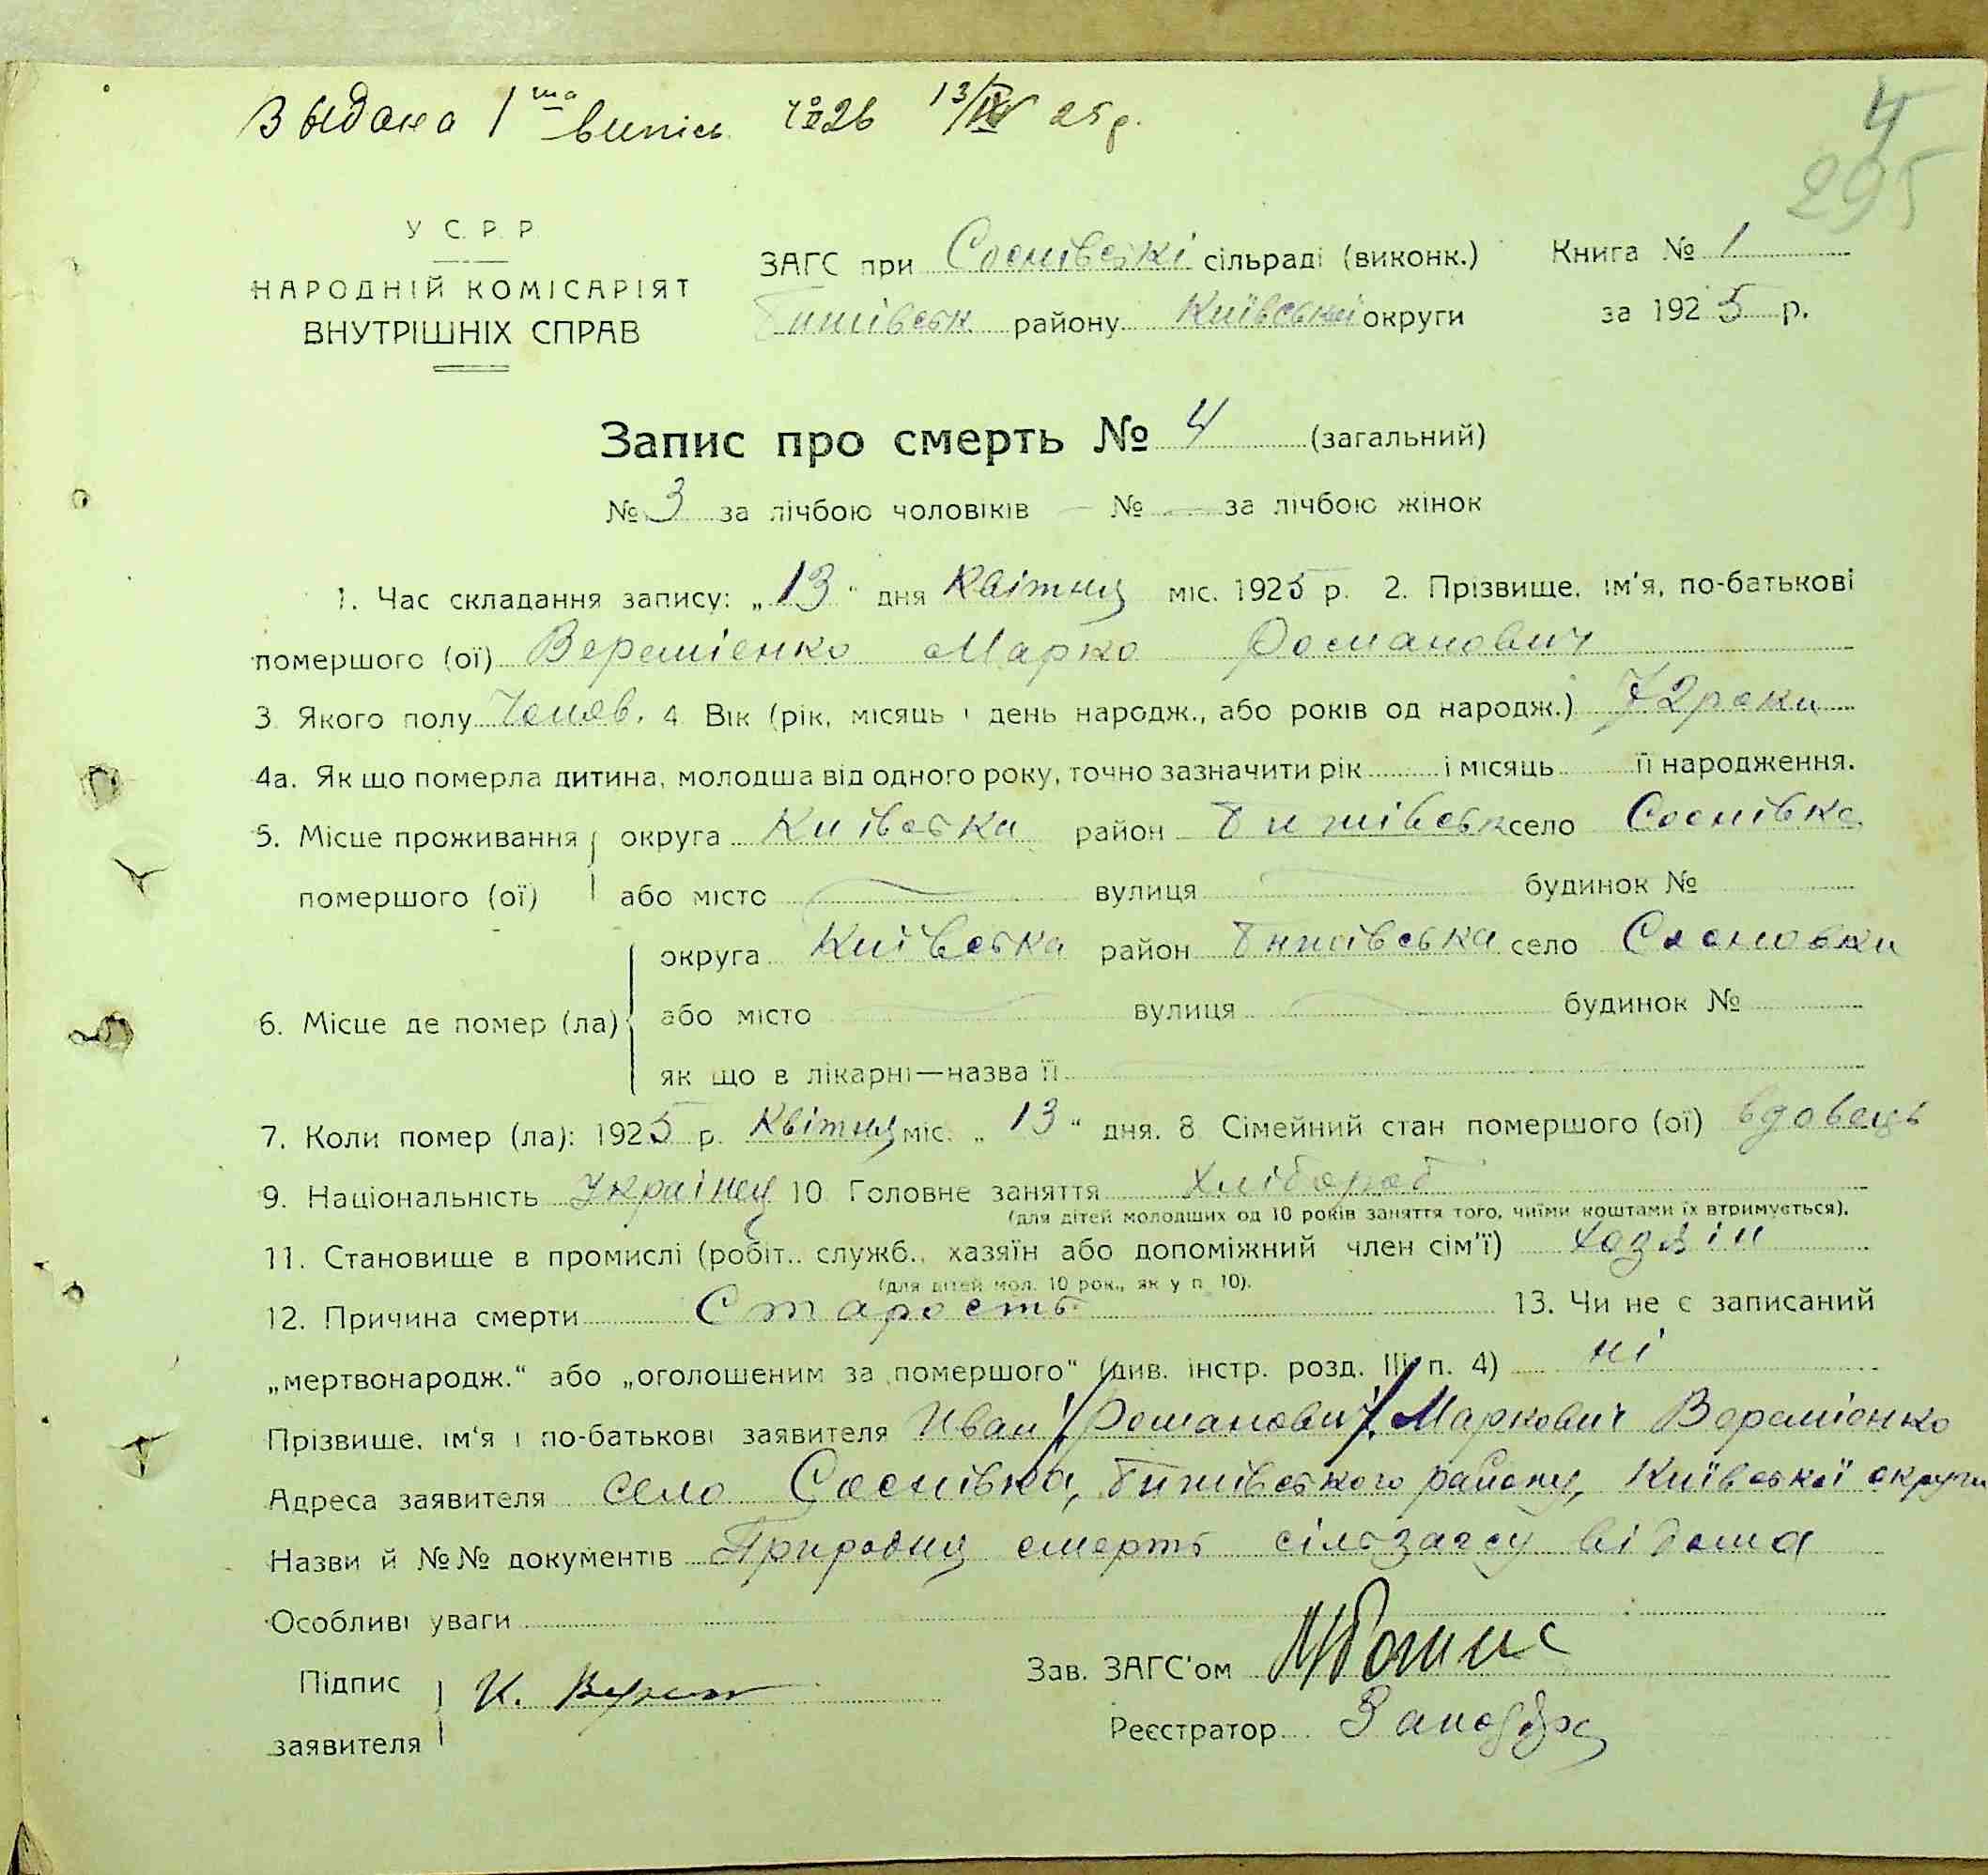 Выдана 1ша випись №26 13/IV 25 р.
4
295
У. С. Р. Р.
НАРОДНІЙ КОМІСАРІЯТ
ВНУТРІШНІХ СПРАВ
ЗАГС при Соснівські сільраді (виконк.) Книга № 1
Бишівськ району Київської округи за 1925 р.
Запис про смерть № 4 (загальний)
№ 3 за лічбою чоловіків — № — за лічбою жінок
1. Час складання запису: „13“ дня Квітня міс. 1925 р. 2. Прізвище, ім'я, по-батькові
помершого (ої) Вереміенко Марко Романович
3. Якого полу Чолов. 4. Вік (рік, місяць і день народж., або років од народж.) 72 роки
4а. Як що померла дитина, молодша від одного року, точно зазначити рік і місяць її народження.
5. Місце проживання округа Київська район Бишівськ село Соснівка
помершого (ої) або місто вулиця будинок №
округа Київська район Бишівська село Сосновки
6. Місце де помер (ла) або місто вулиця будинок №
як що в лікарні—назва її
7. Коли помер (ла): 1925 р. Квітня міс. „13“ дня. 8. Сімейний стан помершого (ої) вдовець
9. Національність Українец 10. Головне заняття хлібороб
(для дітей молодших од 10 років заняття того, чиїми коштами їх втримується).
11. Становище в промислі (робіт., служб., хазяїн або допоміжний член сім'ї) хозяін
(для дітей мол. 10 рок., як у п. 10).
12. Причина смерти Старость 13. Чи не є записаний
„мертвонародж.“ або „оголошеним за помершого“ (див. інстр. розд. III п. 4) ні
Прізвище, ім'я і по-батькові заявителя Иван /Романович/ Маркович Вереміенко
Адреса заявителя село Соснівка, Бишівського району, Київської округи
Назви й №№ документів Природня смерть сільзагсу відома
Особливі уваги
Зав. ЗАГС'ом
Підпис И. Верем
Реєстратор
заявителя